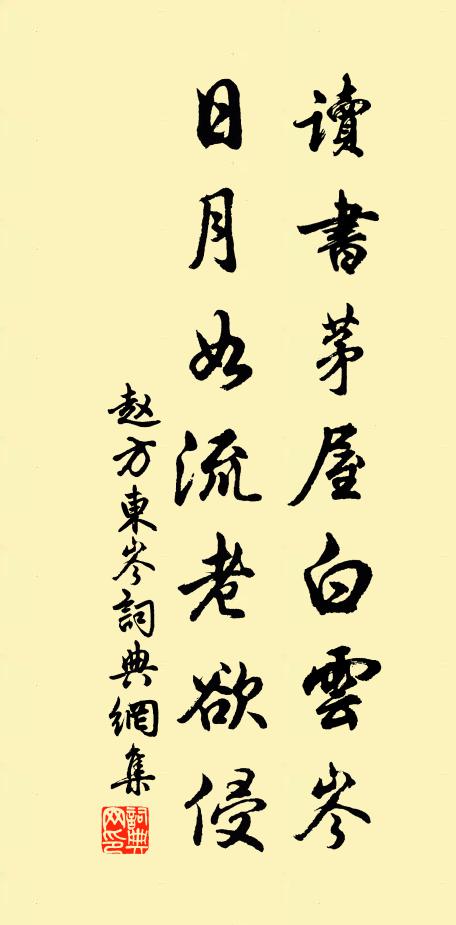 讀書茅屋白雲岑
日月如流老欲侵
赵方東岑詞典網集
詞典网印